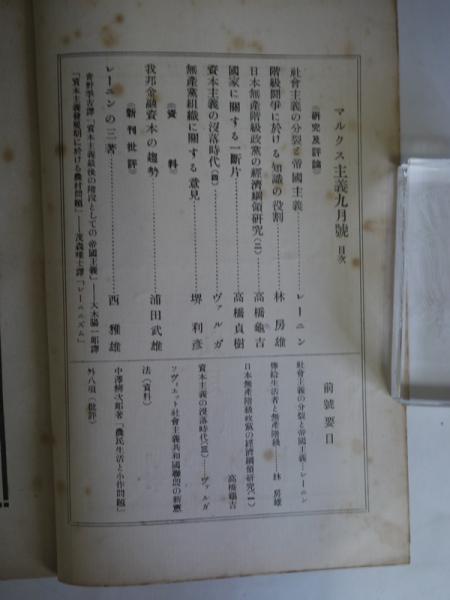 マルクス主義九月號 目次
(研究及評論)
社會主義の分裂と帝國主義……レーニン
階級鬪爭に於ける知識の役割……林房雄
日本無產階級政黨の經濟綱領研究(二)……高橋龜吉
國家に關する一斷片……高橋貞樹
資本主義の沒落時代(四)……ヴァルガ
無產黨組織に關する意見……堺利彥
(資料)
我邦金融資本の趨勢……浦田武雄
(新刊批評)
レーニンの三著……西雅雄
靑野季吉譯「資本主義最後の階段としての帝國主義」――大木陽一郞譯
「資本主義發展期に於ける農村問題」――茂森唯士譯「レーニニズム」
前號要目
社會主義の分裂と帝國主義――レーニン
俸給生活者と無產階級――林房雄
日本無產階級政黨の經濟綱領硏究(一)
高橋龜吉
資本主義の沒落時代(三)――ヴァルガ
ソヴィエット社會主義共和國聯盟の新憲
法(資料)
中澤辨次郎著「農民生活と小作問題」
外八項(批評)